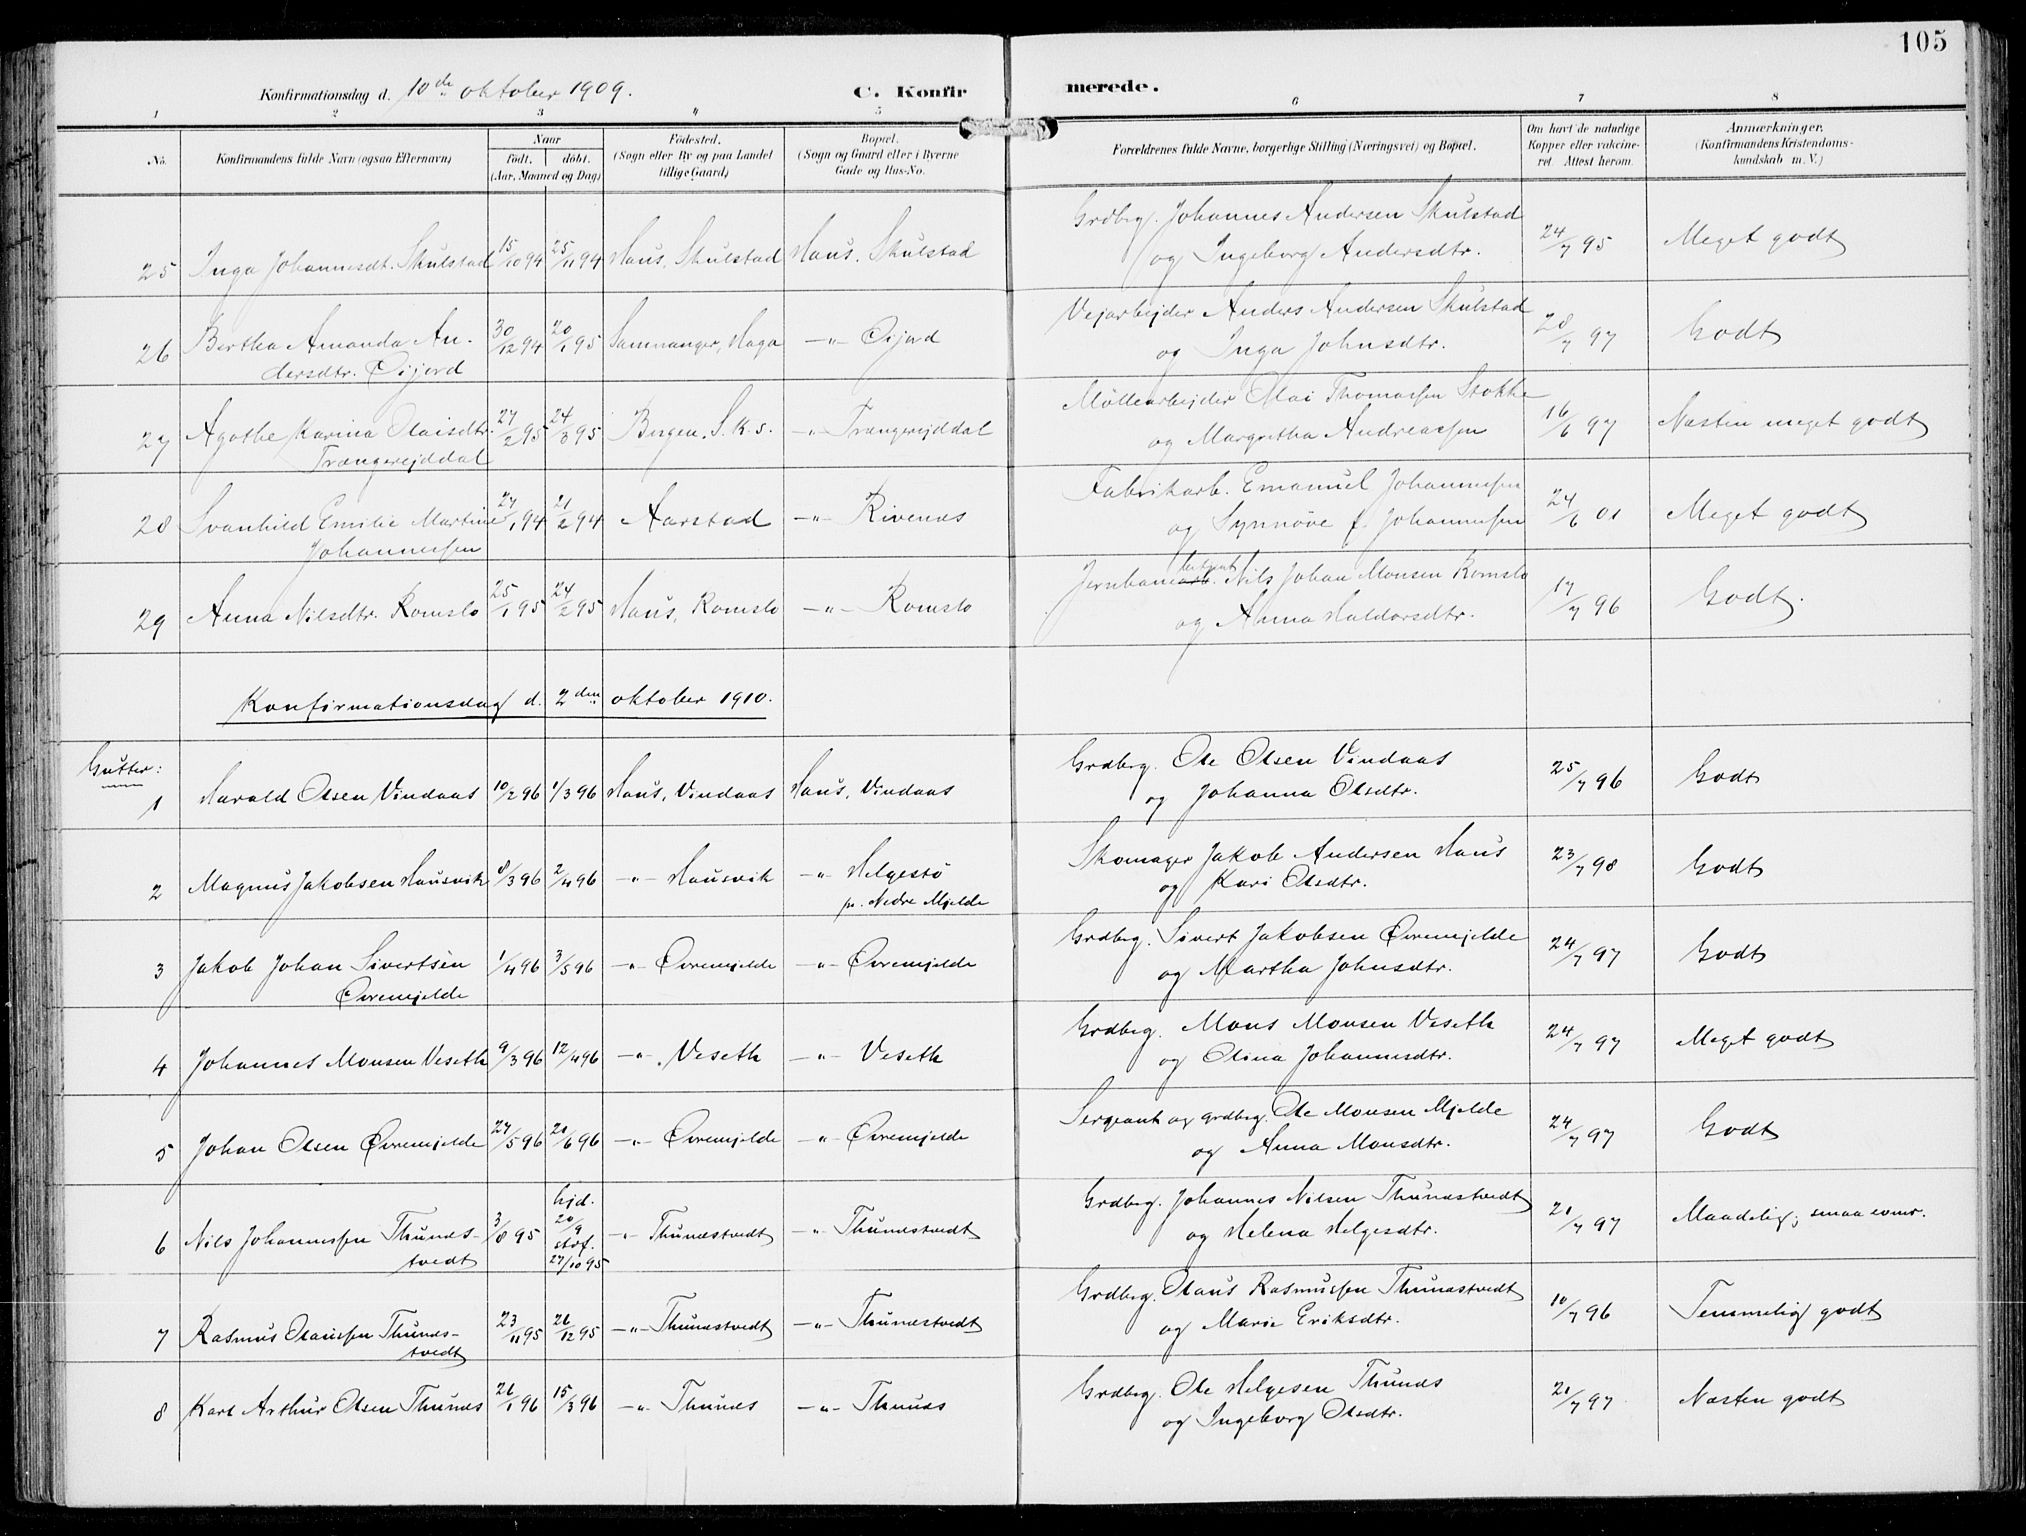 105
Konfirmationsdag d. 10de oktober 1909.
C. Konfirmerede.
1 2 3 4 5 6 7 8
No.
Konfirmandens fulde Navn (ogsaa Efternavn)
Naar
født. døbt.
(Aar, Maaned og Dag)
Fødested.
(Sogn eller By og paa Landet
tillige Gaard)
Bopæl.
(Sogn og Gaard eller i Byerne
Gade og Hus-No.
Forældrenes fulde Navne, borgerlige Stilling (Næringsvei) og Bopæl.
Om havt de naturlige
Kopper eller vakcineret. Attest herom.
Anmærkninger.
(Konfirmandens Kristendomskundskab m. V.)
25 Inga Johannesdt. Skulstad 15/10 94 25/11 94 Haus, Skulstad Haus. Skulstad Grdbrg. Johannes Andersen Skulstad
og Ingeborg Andersdtr. 24/7 95 Meget godt
26 Bertha Amanda Andersdtr. Öijord 30/12 94 20/1 95 Samnanger, Haga -"- Öijord Vejarbejder Anders Andersen Skulstad
og Inga Johnsdtr. 28/7 97 Godt
27 Agathe Karina Olaisdtr.
Trængerejddal 27/2 95 24/3 95 Bergen, S. K. s. -"- Trængerejddal Møllearbejder Olai Thomassen Stokke
og Margretha Andreassen 16/6 97 Næsten meget godt
28 Svanhild Emilie Martine
Johannessen 27/1 94 21/2 94 Aarstad -"- Rivenæs Fabrikarb. Emanuel Johannessen
og Synnøve f. Johannessen 24/6 01 Meget godt
29 Anna Nilsdtr. Romslo 25/1 95 24/2 95 Haus, Romslo -"- Romslo Jernbanearb. Nils Johan Monsen Romslo
og Anna Haldorsdtr. 17/7 96 Godt.
Konfirmationsdag d. 2den oktober 1910.
Gutter:
1 Harald Olsen Vindaas 10/2 96 1/3 96 Haus, Vindaas Haus, Vindaas Grdbrg. Ole Olsen Vindaas
og Johanna Olsdtr. 25/7 96 Godt
2 Magnus Jakobsen Hausvik 8/3 96 2/4 96 -"- Hausvik -"- Helgestø
pr. Nedre Mjelde Skomager Jakob Andersen Haus
og Kari Olsdtr. 23/7 98 Godt
3 Jakob Johan Sivertsen
Øvremjelde 1/4 96 3/5 96 -"- Øvremjelde -"- Øvremjelde Grdbrg. Sivert Jakobsen Øvremjelde
og Martha Johnsdtr. 24/7 97 Godt
4 Johannes Monsen Veseth 9/3 96 12/4 96 -"- Veseth -"- Veseth Grdbrg. Mons Monsen Veseth
og Olina Johannesdtr. 24/7 97 Meget godt
5 Johan Olsen Øvremjelde 27/5 96 20/6 96 -"- Øvremjelde -"- Øvremjelde Sergeant og grdbrg. Ole Monsen Mjelde
og Anna Monsdtr. 24/7 97 Godt
6 Nils Johannessen Thunæstvedt 3/8 95 hjd.
20/9
stsf.
27/10 95 -"- Thunæstvedt -"- Thunæstvedt Grdbrg. Johannes Nilsen Thunæstvedt
og Helena Helgesdtr. 21/7 97 Maadelig; smaa evner.
7 Rasmus Olaussen Thunæstvedt 23/11 95 26/12 95 -"- Thunæstvedt -"- Thunæstvedt Grdbrg. Olaus Rasmussen Thunæstvedt
og Marie Eriksdtr. 10/7 96 Temmelig godt
8 Karl Arthur Olsen Thunæs 26/1 96 15/3 96 -"- Thunæs -"- Thunæs Grdbrg. Ole Helgesen Thunæs
og Ingeborg Olsdtr. 21/7 97 Næsten godt